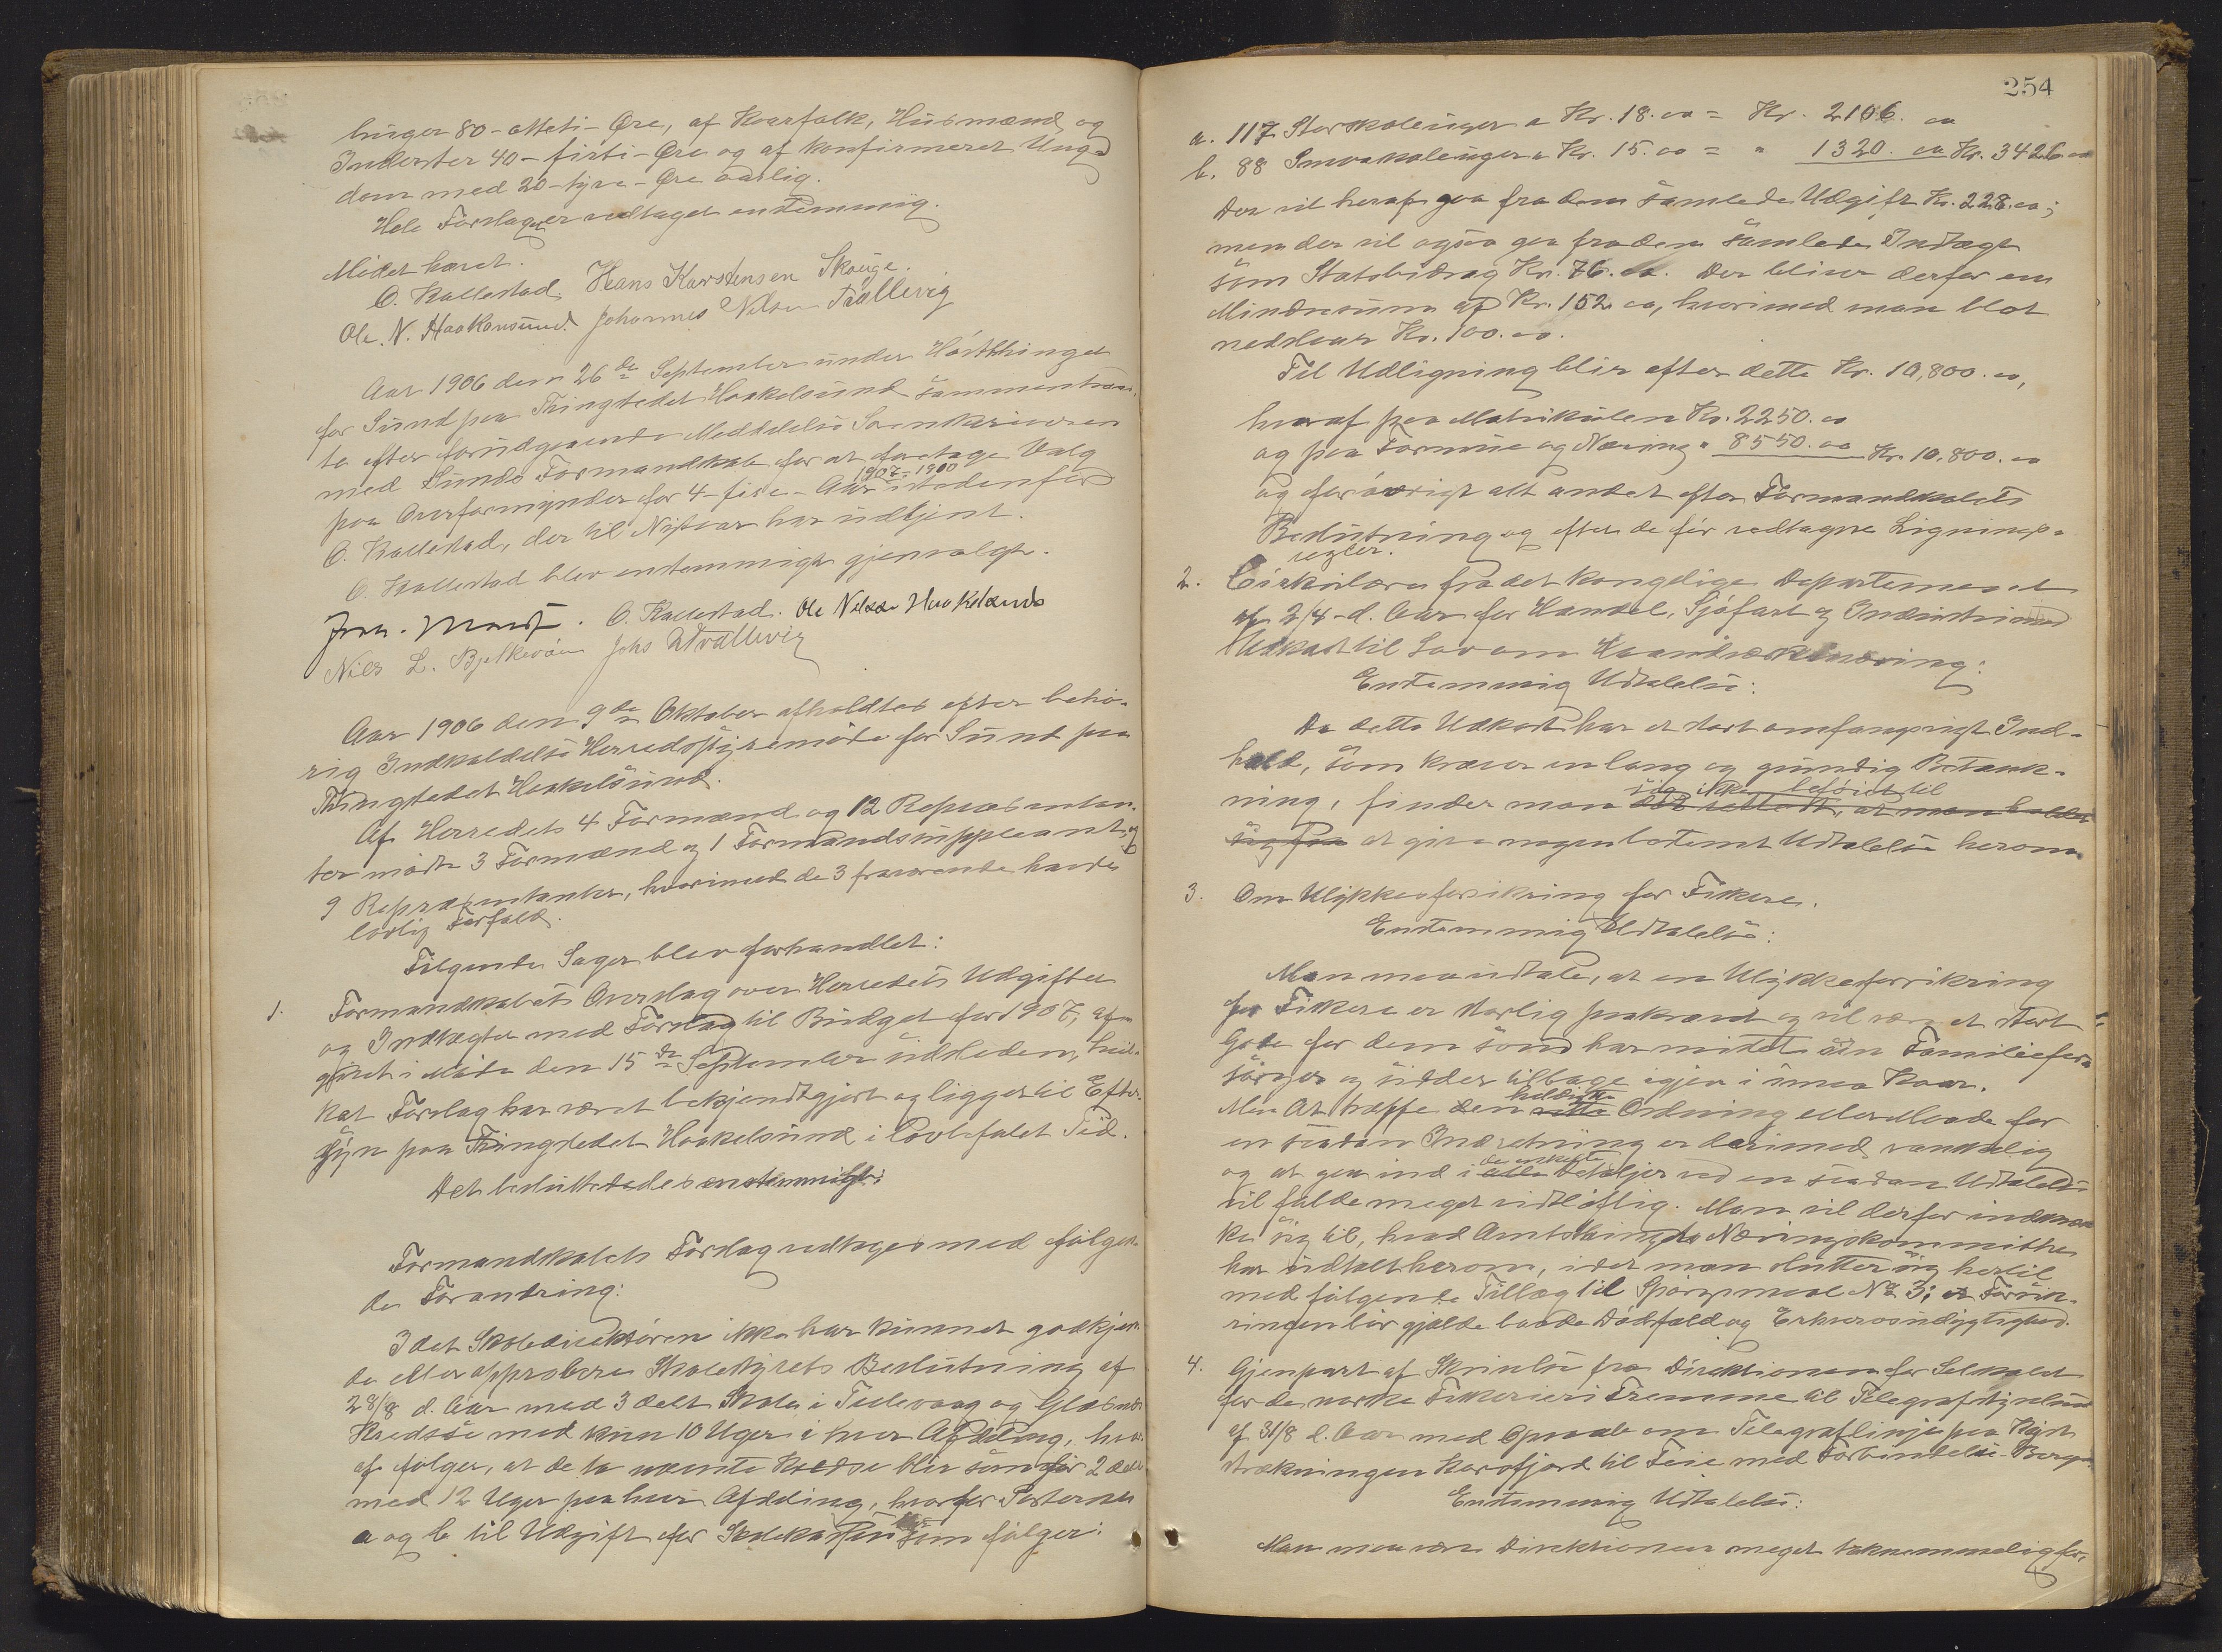 huger 80-otteti-Øre, af Kaarfolk, Husmænd og
Inderster 40-firti-Øre og af konfirmeret Ung-
dom med 20-tyve-Øre aarlig.
Hele Forslaget er vedtaget enstemmig.
Mødet hævet.
O. Kallestad. Hans Karstensen Skouge.
Ole. N. Haakonsund. Johannes Nilsen Trællevig
Aar 1906 den 26de September under Høstthinget
for Sund paa Thingstedet Haakelsund sammentraad-
te efter forudgaaende Meddelelse Sorenskriveren
med Sunds Formandskab for at foretage Valg
1907-1910
paa Overformynder for 4-fire-Aar istedenfor
O. Kallestad, der til Nytaar har udtjent.
O. Kallestad blev enstemmigt gjenvalgt.
O. Kallestad. Ole Nilsen Haakelsund
Nils L. Bjelkerøen Johs NTrællevig
Aar 1906 den 9de Oktober afholdtes efter behø-
rig Indkaldelse Herredsstyremøde for Sund paa
Thingstedet Haakelsund.
Af Herredets 4 Formænd og 12 Repræsentan-
ter mødte 3 Formænd og 1 Formandssuppleant og
9 Repræsentanter, hvorimod de 3 fraværende havde
lovlig Forfald.
Følgende Sager blev forhandlet:
1. Formandskabets Overslag over Herredets Udgifter
og Indtægter med Forslag til Budget for 1907, af-
givet i Møde den 15de September sidstleden, hvil-
ket Forslag har været bekjendtgjort og ligget til Efter-
syn paa Thingstedet Haakelsund i lovbefalet Tid.
Det besluttedes enstemmigt:
Formandskabets Forslag vedtages med følgen-
de Forandring:
Idet Skoledirektøren ikke har kunnet godkjen-
de eller approbere Skolestyrets Beslutning af
28/8 d. Aar med 3 delt Skole i Televaag og Glesnes
Kredse med kun 10 Uger i hver Afdeling, hvor-
af følger, at de to nævnte Kredse blir som før 2 delt
med 12 Uger paa hver Afdeling, hvorfor Posterne
a og b til Udgift for Skolekassen blir som følger:
254
a. 117 Storskoleuger a Kr. 18.00 = Kr. 2106.00
b. 88 Smaaskoleuger a Kr. 15.00 = " 1320.00 Kr. 3426.00
Der vil heraf gaa fra den samlede Udgift Kr. 228.00;
men der vil ogsaa gaa fra den samlede Indtægt
som Statsbidrag Kr. 76.00. Der bliver derfor en
Mindresum af Kr. 152.00, hvorimod man blot
nedskar Kr. 100.00.
Til Udligning blir efter dette Kr. 10,800.00,
hvoraf paa Matrikulen Kr. 2250.00
og paa Formue og Næring " 8550.00 Kr. 10,800.00
og forøvrigt alt andet efter Formandskabets
Beslutning og efter de før vedtagne Lignings-
regler.
2. Cirkulære fra det kongelige Departement
af 2/4 d. Aar for Handel, Sjøfart og Industri med
Udkast til Lov om Haandverksnæring:
Enstemmig Udtalelse:
Da dette Udkast har et stort omfangsrigt Ind-
hold, som kræver en lang og grundig Betænk-
sig ikke beføiet til
ning, finder man det rettest, at man holder
sig fra at give nogen bestemt Udtalelse herom.
3. Om Ulykkesforsikring for Fiskere.
Enstemmig Udtalelse:
Man maa udtale, at en Ulykkesforsikring
for Fiskere er storlig paakrævet og vil være et stort
Gode for dem som har mistet sin Familiefor-
sørger og sidder tilbage igjen i smaa Kaar.
heldigste
Men At træffe den rette Ordning eller Maade for
en saadan Indretning er derimod vanskelig
de enkelte
og at gaa ind i alle Detaljer ved en saadan Udtalelse
vil falde meget vidtløftig. Man vil derfor indskræn-
ke sig til, hvad Amtsthingets Næringskommitthe
har udtalt herom, idet man slutter sig hertil
med følgende Tillæg til Spørgsmaal No 3: at Forsik-
ringen bør gjælde baade Dødsfald og Erhvervsudygtighed.
4. Gjenpart af Skrivelse fra Direktionen for Selskabet
for de norske Fiskeriers Fremme til Telegrafstyrelsen
af 31/8 d. Aar med Opraab om Telegraflinje paa Kyst-
strækningen Korsfjord til Feie med Forbindelse-Bergen.
Enstemmig Udtalelse:
Man maa være Direktionen meget taknemmelig for,